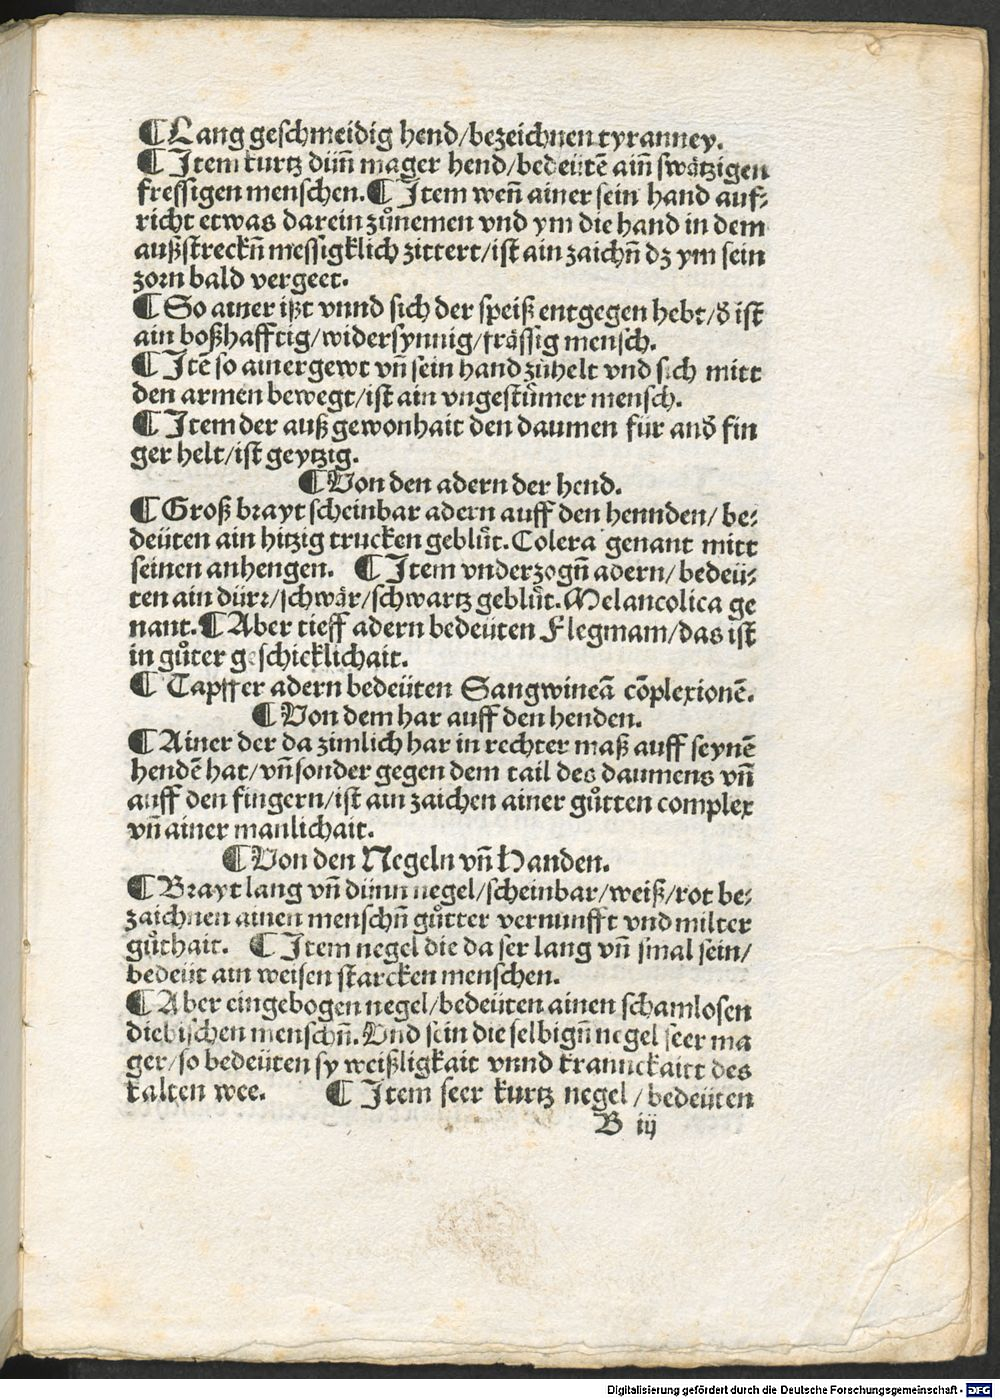 ¶ Lang geschmeidig hend/bezeichnen tyranney.
¶ Item kurtz dün̄ mager hend/bedeütē ain̄ swätzigen
fressigen menschen. ¶ Item wen̄ ainer sein hand auf⸗
richt etwas darein zůnemen vnd ym die hand in dem
außstreckn̄ messigklich zittert/ist ain zaichn̄ dz ym sein
zorn bald vergeet.
¶ So ainer ißt vnnd sich der speiß entgegen hebt/d̕ ist
ain boßhafftig/widersynnig/frässig mensch.
¶ Itē so ainer gewt vn̄ sein hand zůhelt vnd sich mitt
den armen bewegt/ist ain vngestůmer mensch.
¶ Item der auß gewonhait den daumen für and̕ fin
ger helt/ist geytzig.
¶ Von den adern der hend.
¶ Groß brayt scheinbar adern auff den hennden/ be⸗
deüten ain hitzig trucken geblůt. Colera genant mitt
seinen anhengen. ¶ Item vnderzogn̄ adern/ bedeü⸗
ten ain dürr/schwär/schwartz geblůt. Melancolica ge
nant. ¶ Aber tieff adern bedeüten Flegmam/das ist
in gůter geschicklichait.
¶ Tapffer adern bedeüten Sangwineā cōplexionē.
¶ Von dem har auff den henden.
¶ Ainer der da zimlich har in rechter maß auff seynē
hendē hat/vn̄ sonder gegen dem tail des daumens vn̄
auff den fingern/ist ain zaichen ainer gůtten complex
vn̄ ainer manlichait.
¶ Von den Negeln vn̄ Handen.
¶ Brayt lang vn̄ dünn negel/scheinbar/weiß/rot be⸗
zaichnen ainen menschn̄ gůtter vernunfft vnd milter
gůthait. ¶ Item negel die da ser lang vn̄ smal sein/
bedeüt ain weisen starcken menschen.
¶ Aber eingebogen negel/bedeüten ainen schamlosen
diebischen menschn̄. Vnd sein die selbign̄ negel seer ma
ger/so bedeüten sy weißligkait vnnd kranckaitt des
kalten wee. ¶ Item seer kurtz negel / bedeüten
B iij
Digitalisierung gefördert durch die Deutsche Forschungsgemeinschaft - DFG